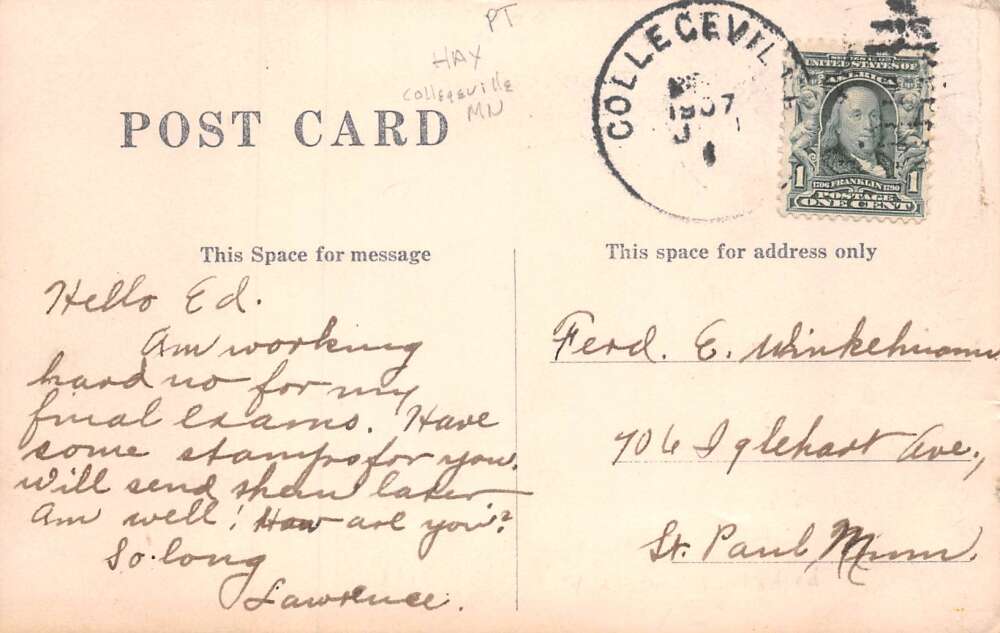 PT
HAX
Collegeville
MN
POST CARD
COLLEGEVIL
1907
SERIES 1902
UNITED STATES OF
AMERICA
1 1706 FRANKLIN 1790 1
POSTAGE
ONE CENT
This Space for message
This space for address only
Hello Ed.
Am working
hard no for my
final exams. Have
some stamps for you.
Will send them later
Am well! How are you?
So long
Lawrence.
Ferd. E. Winkelmann
706 Iglehart Ave.,
St. Paul Minn.